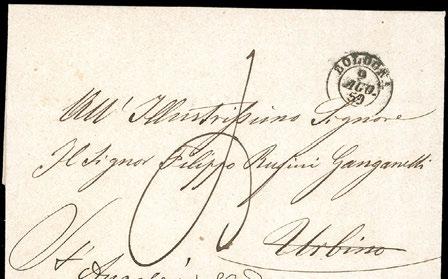 BOLOGNA
9
AGO.
59
All' Illustrissimo Signore
Il Signor Filippo Rufini Ganganelli
Urbino
S. Angelo in